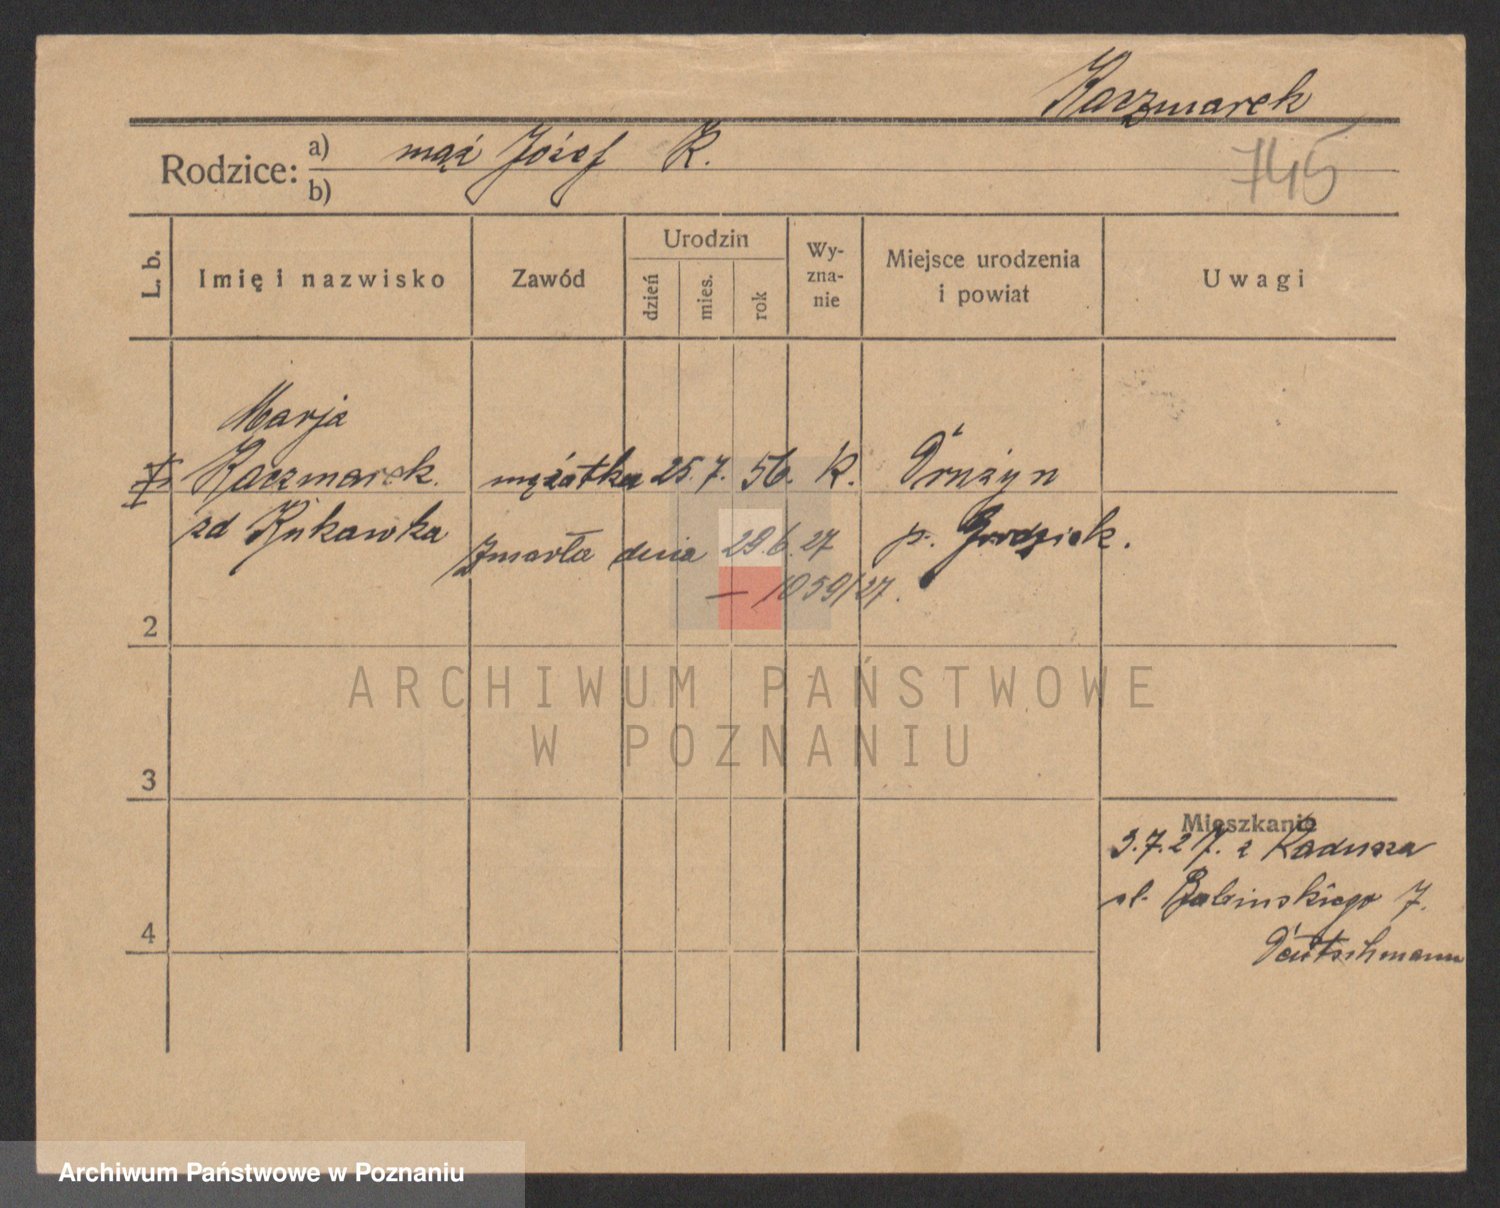 Kaczmarek
745
Rodzice: a) mąż Józef K.
b)
L. b. Imię i nazwisko Zawód Urodzin dzień mies. rok Wy-zna-nie Miejsce urodzenia i powiat Uwagi
Marja
Kaczmarek mężatka 25. 7. 56. K. Drużyn
zd Rukawka p. Grodzisk.
Zmarła dnia 29.6.27
— 1059/27.
2
3
4
Mieszkanie
3.7.27. z
ul. Babinskiego 7.
Deutschmann
ARCHIWUM PAŃSTWOWE
W POZNANIU
Archiwum Państwowe w Poznaniu